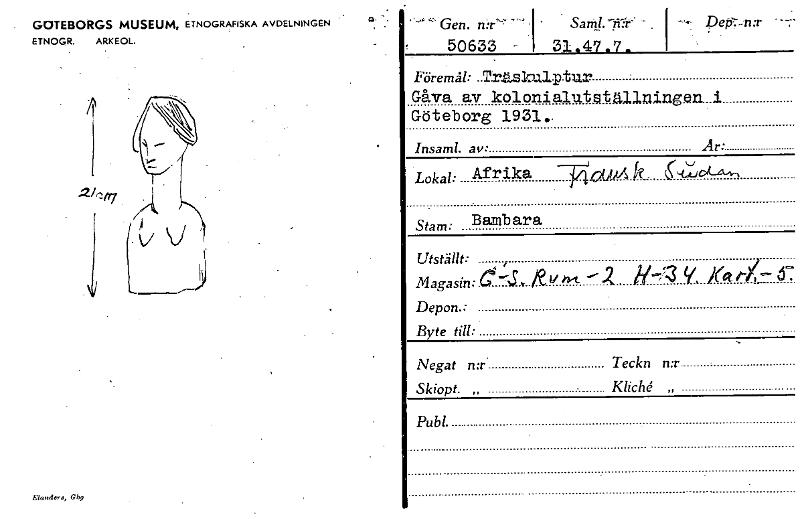 GÖTEBORGS MUSEUM, ETNOGRAFISKA AVDELNINGEN
ETNOGR. ARKEOL.
21 cm
Elanders, Gbg
Gen. n:r Saml. n:r Dep. n:r
50633 31.47.7.
Föremål: Träskulptur
Gåva av kolonialutställningen i
Göteborg 1931.
Insaml. av: År:
Lokal: Afrika Fransk Sudan
Stam: Bambara
Utställt:
Magasin: G-S. Rum-2 H-34. Kart.-5.
Depon.:
Byte till:
Negat n:r Teckn n:r
Skiopt. „ Kliché „
Publ.